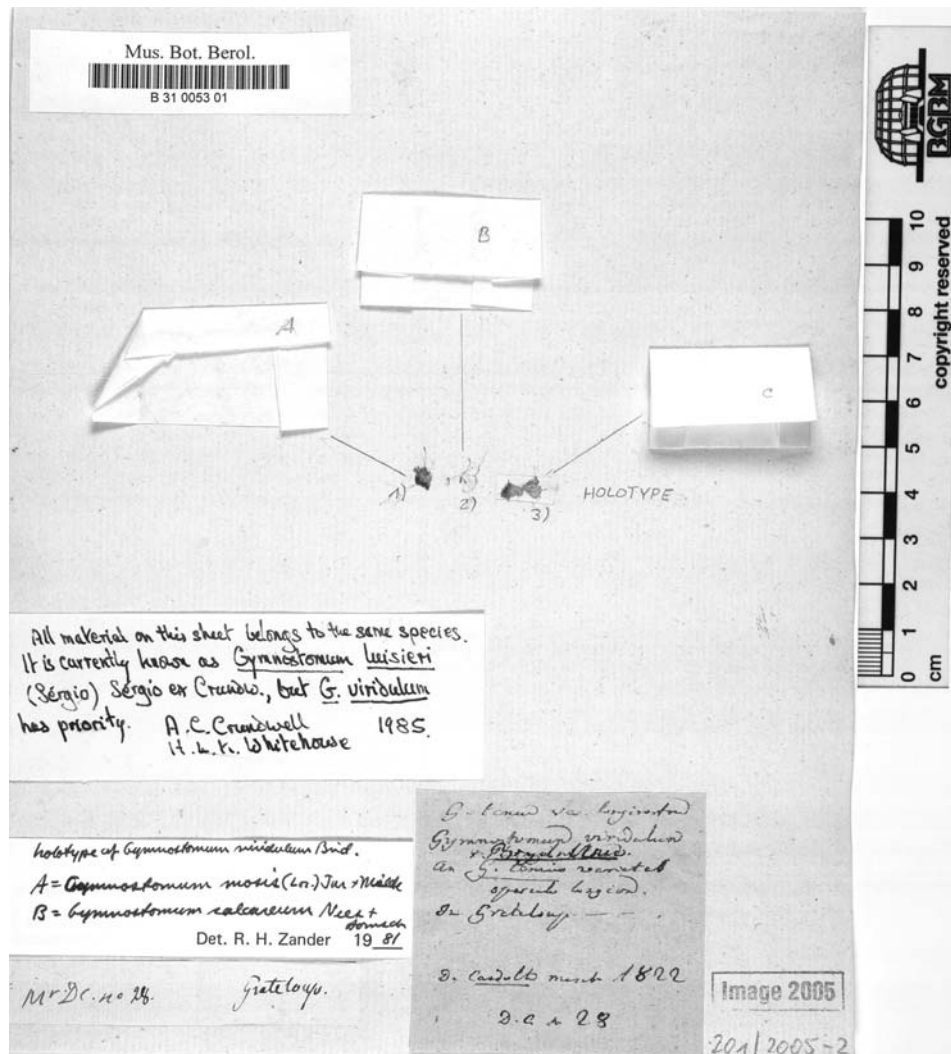 Mus. Bot. Berol.
B 31 0053 01
BGBM
copyright reserved
10
9
8
7
6
5
4
3
2
1
0
cm
B
A
C
1)
2)
3)
HOLOTYPE
All material on this sheet belongs to the same species.
It is currently known as Gymnostomum luisieri
(Sérgio) Sérgio ex Crundw., but G. viridulum
has priority. A.C. Crundwell 1985.
H.L.K. Whitehouse
holotype of Gymnostomum viridulum Brid.
A = Gymnostomum mosis (Lor.) Jur + Milde
B = Gymnostomum calcareum Nees +
Hornsch
Det. R. H. Zander 19 81
Mr DC. no 28. Grateloup.
Gymnostomum viridulum
An G. varietas
operculo
Dr Grateloup
D. Candolle 1822
D.C n 28
Image 2005
201/2005-2